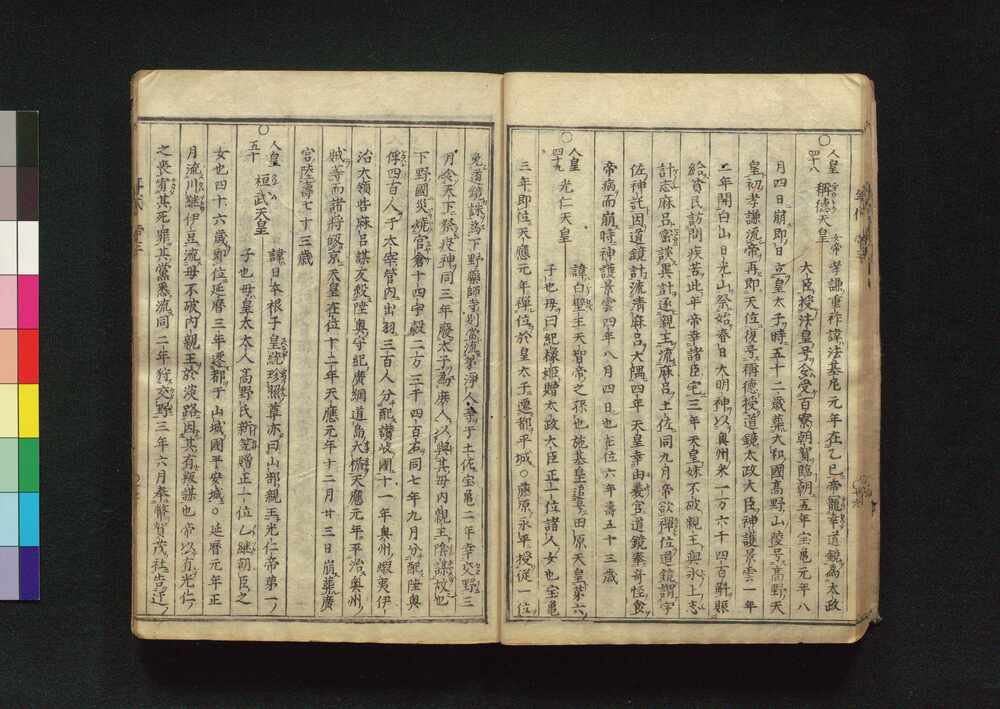 人皇四十八 稱德天皇 女帝 孝謙重祚諱法基尼元年在乙巳帝寵幸道鏡為太政
大臣授法皇号令受百寮朝賀臨朝五年宝亀元年八
月四日崩即日立皇太子時五十二歳葬大和國高野山陵号高野天
皇初孝謙流帝再即天位復号稱德授道鏡太政大臣神護景雲一年
二年開白山日光山祭始春日大明神以奥州米一万六千四百斛賑
給貧民訪問疾苦此年帝幸諸臣宅三年天皇妹不破親王與氷上志
計志麻呂密談異計逐親王流麻呂土佐同九月帝欲禪位道鏡謂宇
佐神託因道鏡計流清麻呂大隅四年天皇幸由義宮道鏡奉奇怪食
帝病而崩時神護景雲四年八月四日也在位六年壽五十三歳
人皇四十九 光仁天皇 諱白壁王天智帝之孫也施基皇追号田原天皇第六
子也母曰紀椽姫贈太政大臣正一位諸人女也宝亀
三年即位天應元年禪位於皇太子遷都平城○藤原永平授從一位
免道鏡誅為下野藥師寺別當流弟淨人等于土佐宝亀二年幸交野三
月令天下祭疫神同三年廢太子為庶人以與其母内親王陰謀故也
下野國災燒官倉十四宇穀二万三千四百石同七年九月分配陸奥
俘四百人于太宰管内出羽三百人分配讃岐國十一年奥州蝦夷伊
治大領呰麻呂謀友殺陸奥守紀廣綱道島大楯天應元年平治奥州
賊等而諸將皈京天皇在位十二年天應元年十二月廿三日崩葬廣
宮陵壽七十三歳
人皇五十 桓武天皇 諱日本根子皇統珍照尊亦曰山部親王光仁帝第一
子也母皇太夫人高野氏新笠贈正一位乙継朝臣之
女也四十六歳即位延暦三年遷都于山城國平安城○延暦元年正
月流川継伊豆流母不破内親王於淡路因其有叛謀也帝以有光仁
之喪宥其死罪其黨悉流同二年狩交野三年六月奉幣賀茂社告遷